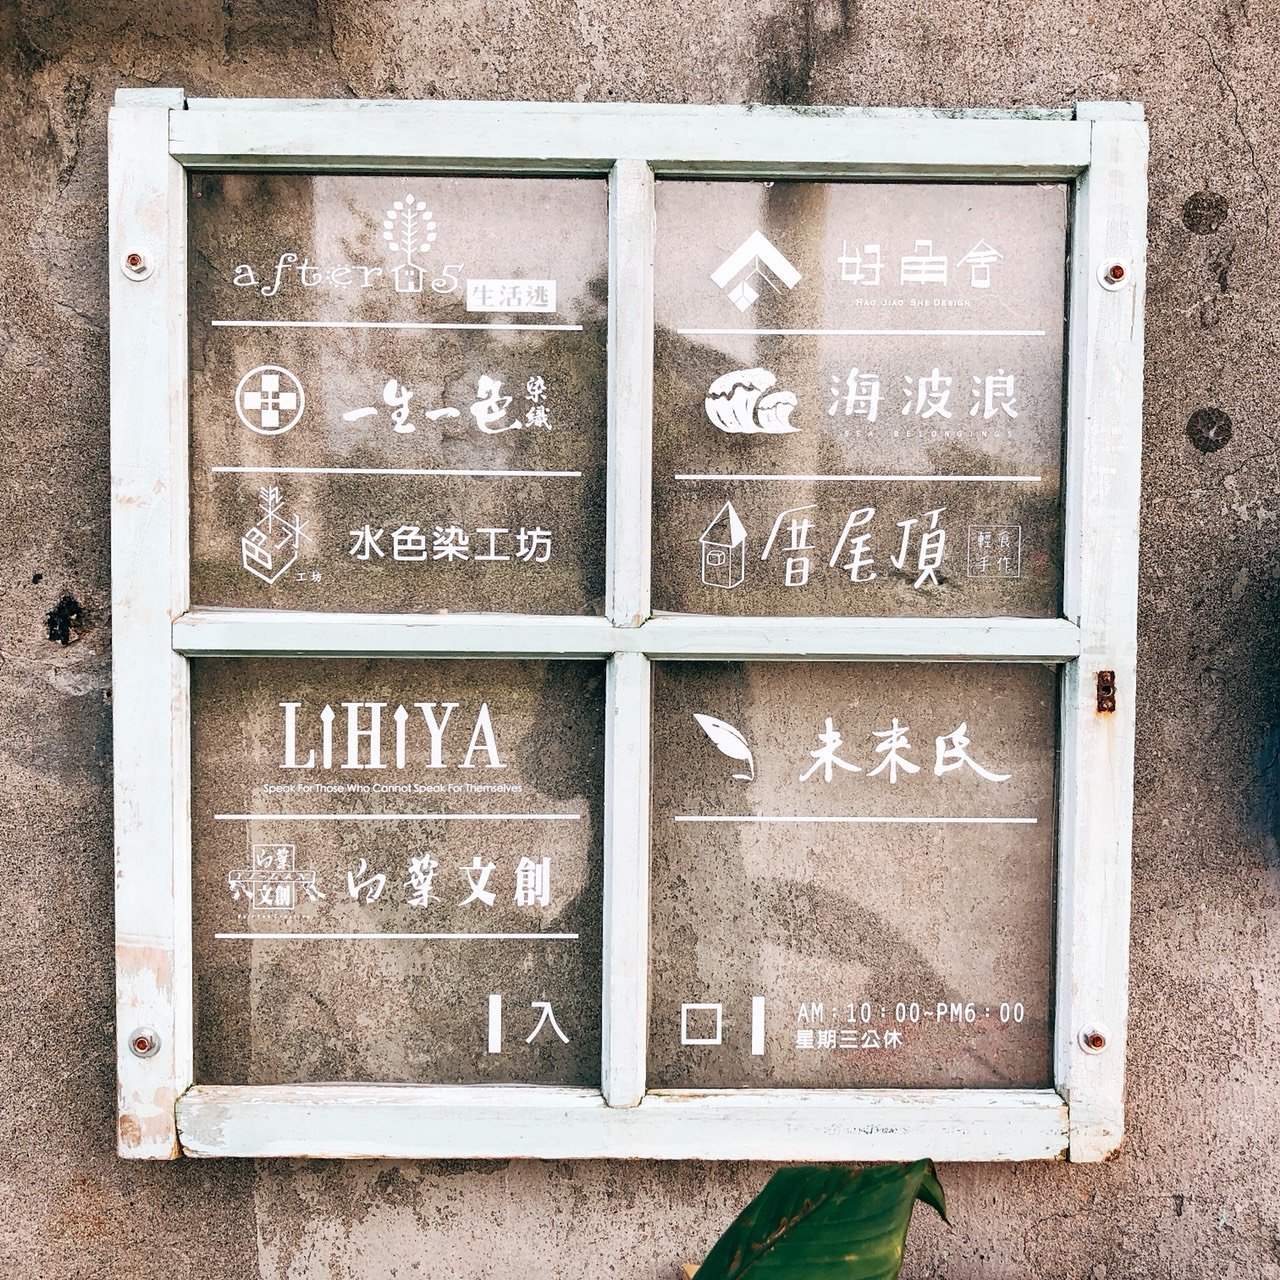 after 5
生活逃
好齒舍
HAO JIAO SHE DESIGN
一生一色
染織
海波浪
SEA BELONGINGS
染水色
工坊
水色染工坊
厝尾頂
輕食
手作
LiHiYA
Speak For Those Who Cannot Speak For Themselves
未來氏
白葉
文創
白葉文創
入
口
AM：10：00~PM6：00
星期三公休